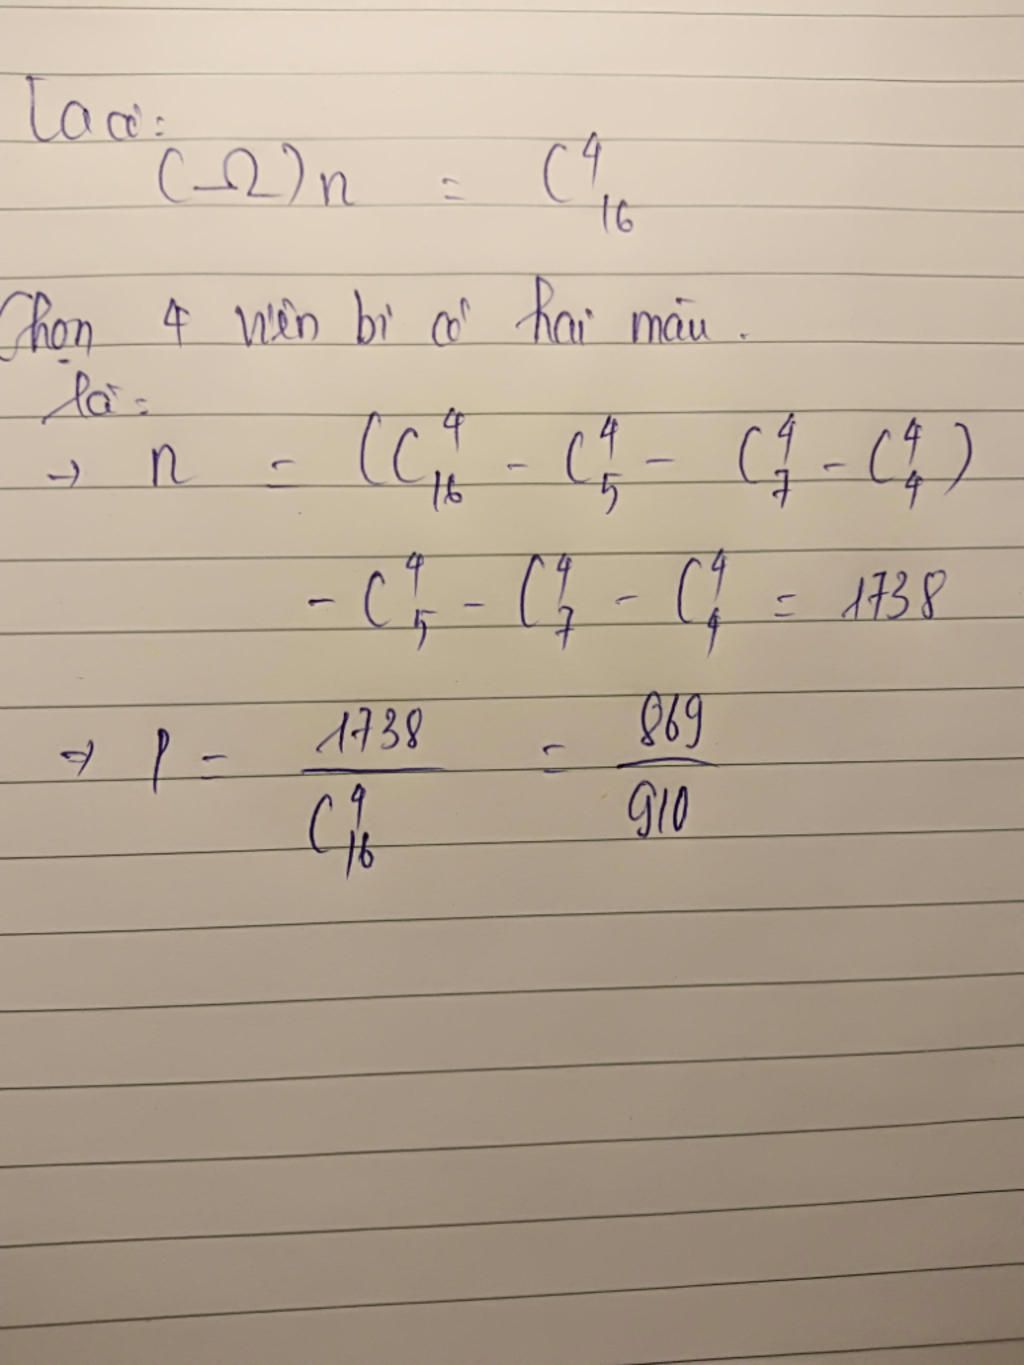 Ta có:
(Ω)n = C⁴₁₆
Chọn 4 viên bi có hai màu.
là:
→ n = (C⁴₁₆ - C⁴₅ - C⁴₇ - C⁴₄)
- C⁴₅ - C⁴₇ - C⁴₄ = 1738
⇒ P = 1738/C⁴₁₆ = 869/910